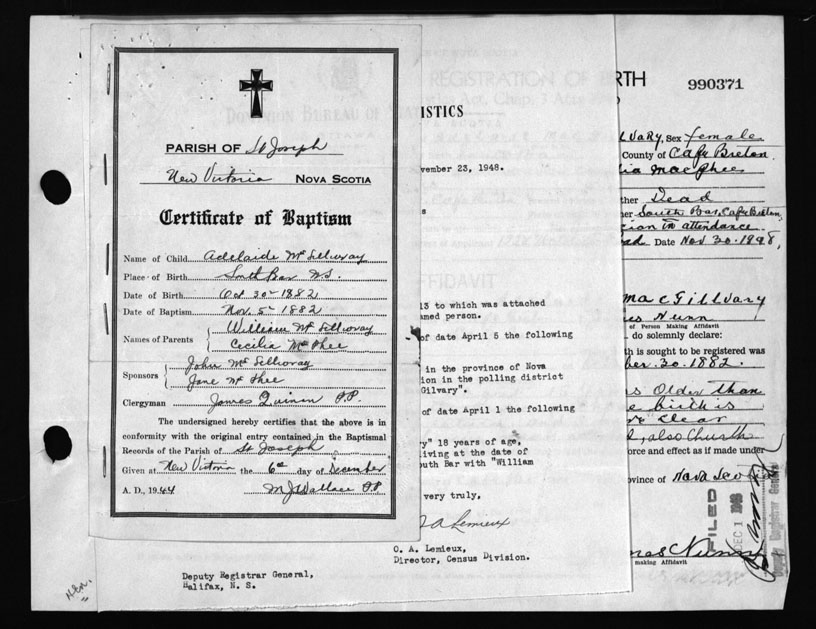 PARISH OF St Joseph
New Victoria NOVA SCOTIA
Certificate of Baptism
Name of Child Adelaide McGillivray
Place of Birth South Bar N.S.
Date of Birth Oct 30 - 1882
Date of Baptism Nov. 5 - 1882
Names of Parents William McGillivray
Cecilia McPhee
Sponsors John McGillivray
Jane McPhee
Clergyman James Quinan P.P.
The undersigned hereby certifies that the above is in
conformity with the original entry contained in the Baptismal
Records of the Parish of St Joseph
Given at New Victoria the 6th day of December
A. D., 1944 M J Wallace P.P.
ISTICS
vember 23, 1948.
s
13 to which was attached
amed person.
of date April 5 the following
in the province of Nova
ion in the polling district
Gilvary".
of date April 1 the following
ry" 18 years of age,
iving at the date of
outh Bar with "William
very truly,
A Lemieux
O. A. Lemieux,
Director, Census Division.
Deputy Registrar General,
Halifax, N. S.
REGISTRATION OF BIRTH
990371
lvary, Sex female
County of Cape Breton
ia MacPhee
ther Dead
her South Bar, Cape Breton
cian in attendance
Date Nov 30. 1948,
MacGillvary
es Nunn
of Person Making Affidavit
do solemnly declare:
th is sought to be registered was
ber. 30. 1882.
s Older than
e birth is
clear
, also Church
orce and effect as if made under
ovince of Nova Scotia
FILED
DEC 1 1948
Deputy Registrar General
mas Nunn
making Affidavit